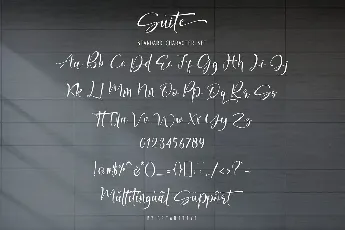 Suite
STANDARD CHARACTER SET
Aa Bb Cc Dd Ee Ff Gg Hh Ii Jj
Kk Ll Mm Nn Oo Pp Qq Rr Ss
Tt Uu Vv Ww Xx Yy Zz
0123456789
Multilingual Support